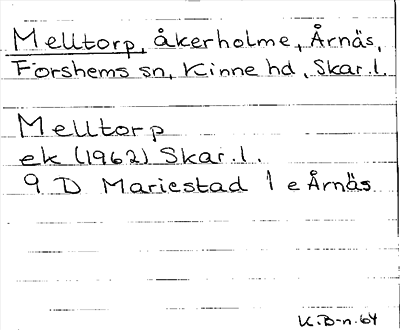 Melltorp, åkerholme, Årnäs,
Forshems sn, Kinne hd, Skar.l.
Melltorp
ek (1962) Skar.l.
9 D Mariestad 1 e Årnäs
K.B-n.64